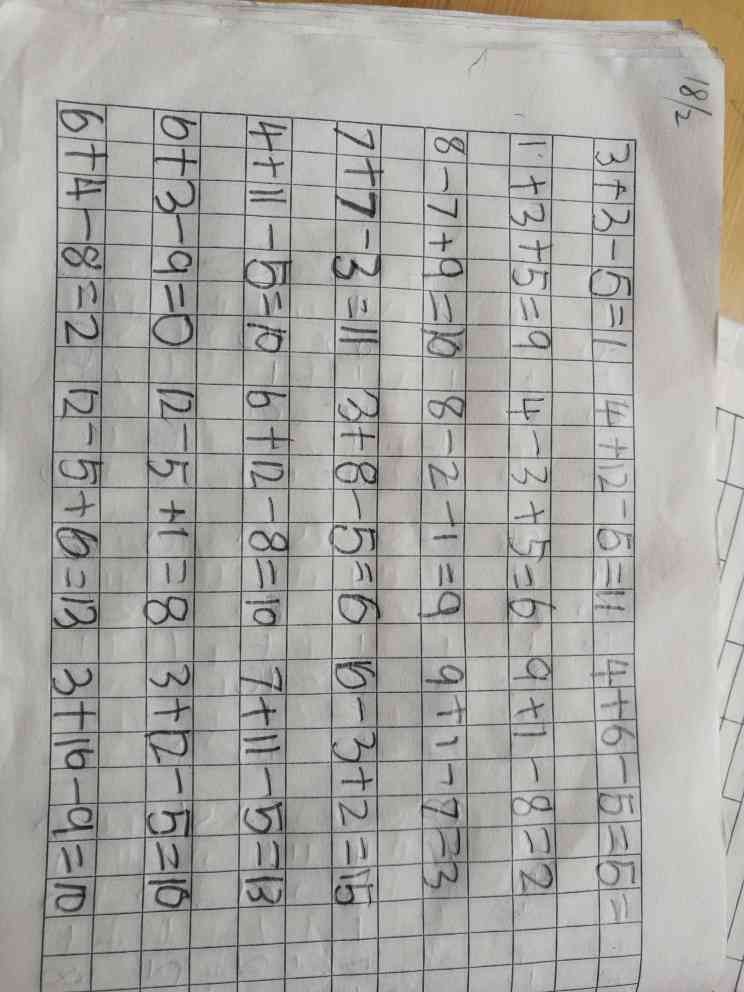 18/2
3+3-5=1 4+12-5=11 4+6-5=5=
1+3+5=9 4-3+5=6 9+1-8=2
8-7+9=10 8-2-1=9 9+1-7=3
7+7-3=11 3+8-5=6 16-3+2=15
4+11-5=10 6+12-8=10 7+11-5=13
6+3-9=0 12-5+1=8 3+12-5=10
6+4-8=2 12-5+6=13 3+16-9=10